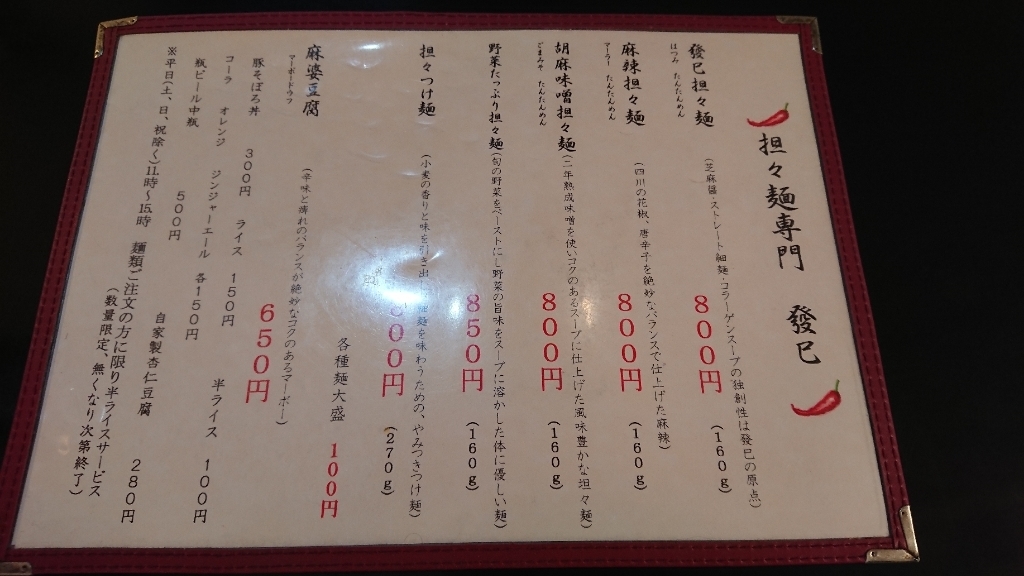 担々麺専門 發巳
發巳担々麺
はつみ たんたんめん
(芝麻醤・ストレート細麺・コラーゲンスープの独創性は發巳の原点)
800円 (160g)
麻辣担々麺
マーラー たんたんめん
(四川の花椒、唐辛子を絶妙なバランスで仕上げた麻辣)
800円 (160g)
胡麻味噌担々麺
ごまみそ たんたんめん
(二年熟成味噌を使いコクのあるスープに仕上げた風味豊かな坦々麺)
800円 (160g)
野菜たっぷり担々麺
(旬の野菜をペーストにし野菜の旨味をスープに溶かした体に優しい麺)
850円 (160g)
担々つけ麺
(小麦の香りと味を引き出し 細麺を味わうための、やみつきつけ麺)
00円 (270g)
各種麺大盛 100円
麻婆豆腐
マーボードウフ
(辛味と痺れのバランスが絶妙なコクのあるマーボー)
650円
豚そぼろ丼 300円 ライス 150円 半ライス 100円
コーラ オレンジ ジンジャーエール 各150円
瓶ビール中瓶 500円 自家製杏仁豆腐 280円
※平日(土、日、祝除く)11時〜15時 麺類ご注文の方に限り半ライスサービス
(数量限定、無くなり次第終了)